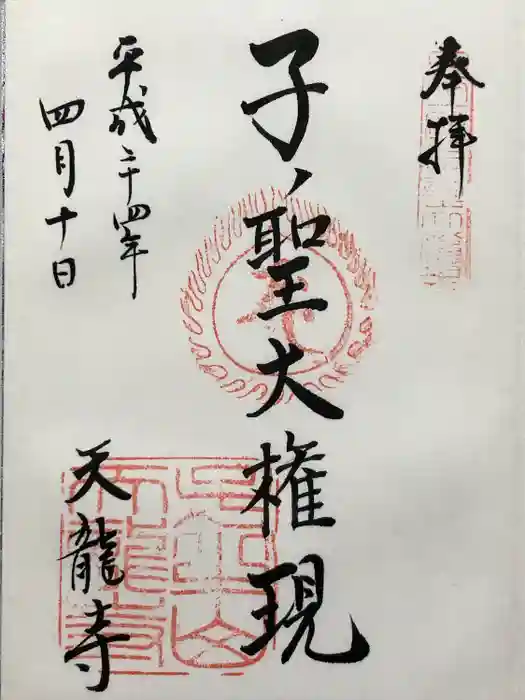 奉拝
子ノ聖大権現
平成二十四年
四月十日
天龍寺